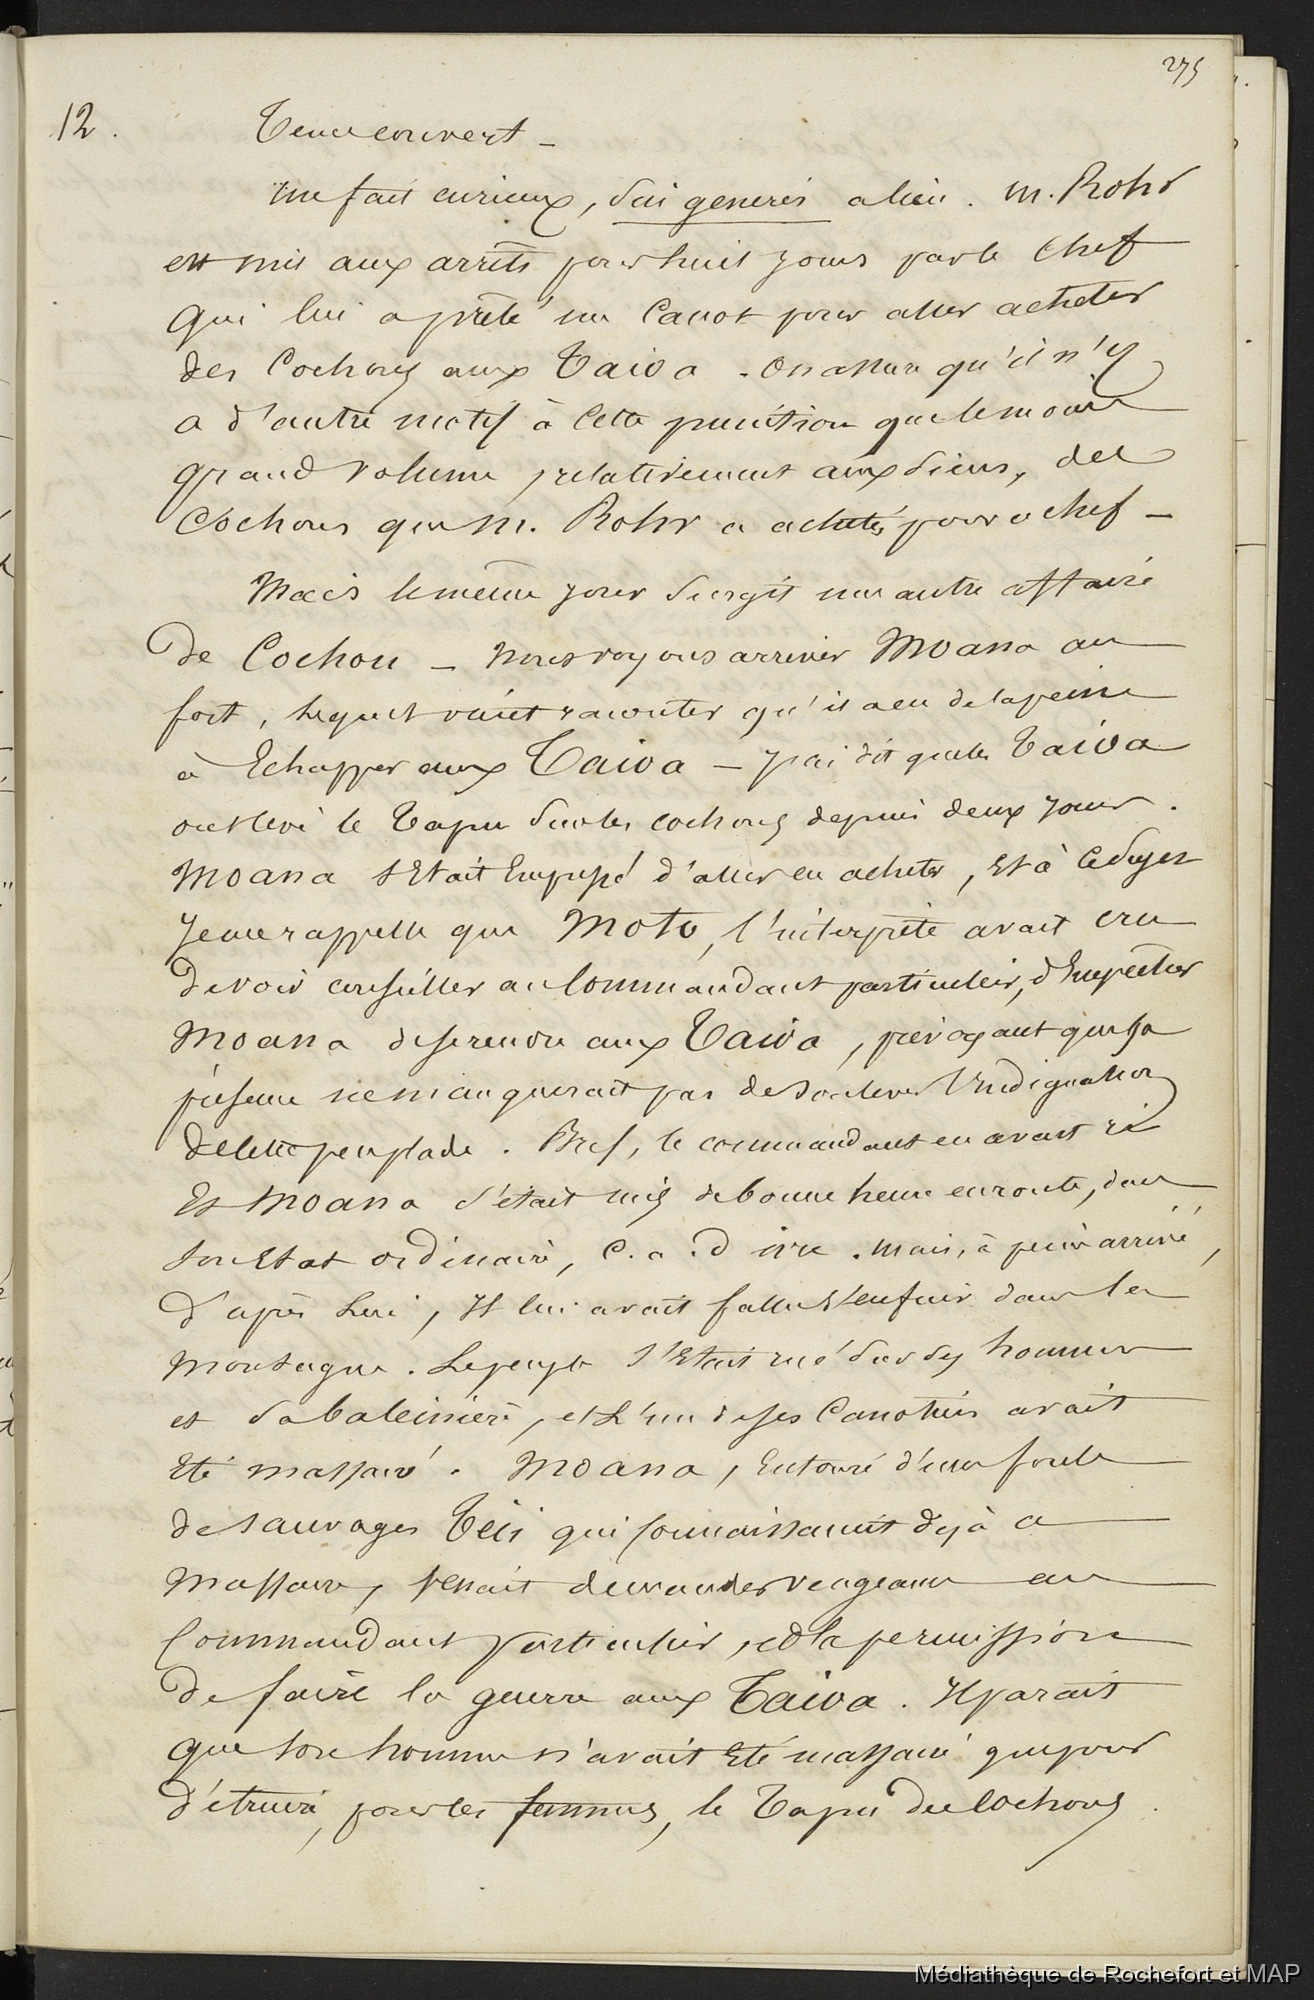 275
12.
Temps couvert —
Un fait curieux, sui generis a lieu. M. Rohr
est mis aux arrêts pour huit jours par le Chef
qui lui a prêté un Canot pour aller acheter
des Cochons aux Taioa. On assure qu'il n'y
a d'autre motif à cette punition que le moins
grand volume, relativement aux siens, des
Cochons que M. Rohr a achetés pour ce chef —
Mais le même jour surgit une autre affaire
de Cochon — Nous voyons arriver Moana au
fort, lequel vient raconter qu'il a eu de la peine
à Echapper aux Taioa — j'ai dit que les Taioa
ont levé le Tapu sur les cochons depuis deux jours.
Moana s'Etait Empressé d'aller en acheter, Et à ce sujet
je me rappelle que Moto, l'interprète avait cru
devoir conseiller au Commandant particulier, d'Empêcher
Moana de se rendre aux Taioa, prévoyant que sa
présence ne manquerait pas de soulever l'indignation
de cette peuplade. Bref, le commandant en avait ri
Et Moana s'était mis de bonne heure en route, dans
son Etat ordinaire, c. a. d ivre. Mais, à peine arrivé,
d'après Lui, Il lui avait fallu s'enfuir dans les
montagnes. Le peuple s'Etait rué sur ses hommes
et sa baleinière, et L'un de ses Canotiers avait
Eté massacré. Moana, Entouré d'une foule
de sauvages Teii qui connaissaient déjà ce
massacre, venait demander vengeance au
Commandant particulier, et la permission
de faire la guerre aux Taioa. Il parait
que son homme n'avait Eté massacré que pour
détruire, pour les femmes, le Tapu des Cochons.
Médiathèque de Rochefort et MAP